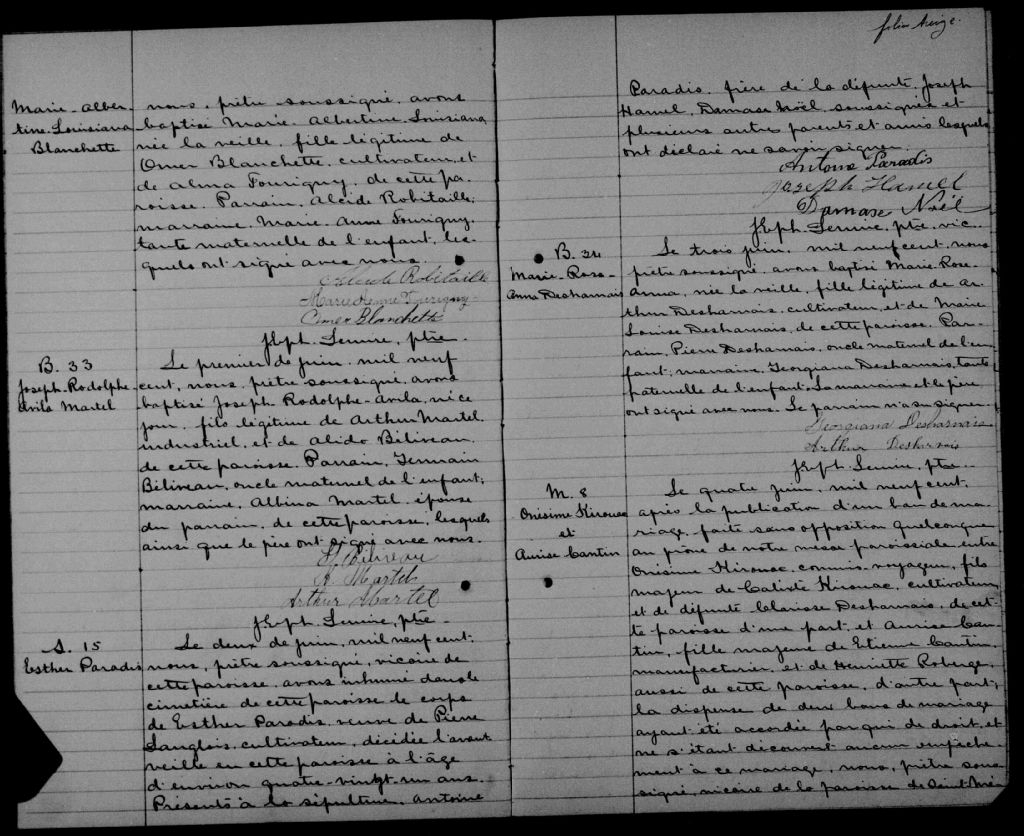 Marie-Alber-
tine-Louisiana
Blanchette
nous, prêtre soussigné, avons
baptisé Marie-Albertine-Louisiana
née la veille, fille légitime de
Omer Blanchette, cultivateur, et
de Alma Tourigny, de cette pa-
roisse. Parrain, Alcide Robitaille,
marraine, Marie-Anne Tourigny,
tante maternelle de l'enfant, les-
quels ont signé avec nous.
Alcide Robitaille
Marie Anne Tourigny
Omer Blanchette
ptre
B. 33
Joseph-Rodolphe
Avila Martel
Le premier de juin, mil neuf
cent, nous, prêtre soussigné, avons
baptisé Joseph-Rodolphe-Avila, né ce
jour, fils légitime de Arthur Martel
industriel, et de Alida Béliveau,
de cette paroisse. Parrain, Germain
Béliveau, oncle maternel de l'enfant;
marraine, Albina Martel, épouse
du parrain, de cette paroisse, lesquels
ainsi que le père ont signé avec nous.
G Béliveau
A. Martel
Arthur Martel
ptre
S. 15
Esther Paradis
Le deux de juin, mil neuf cent,
nous, prêtre soussigné, vicaire de
cette paroisse, avons inhumé dans le
cimetière de cette paroisse le corps
de Esther Paradis, veuve de Pierre
Langlois, cultivateur, décédée l'avant
veille en cette paroisse à l'âge
d'environ quatre-vingt-un ans.
Présents à la sépulture, Antoine
folio
Paradis, frère de la défunte, Joseph
Hamel, Damase Noël, soussignés et
plusieurs autres parents et amis lesquels
ont déclaré ne savoir signer.
Antoine Paradis
Joseph Hamel
Damase Noël
ptre, vic.
B. 34
Marie-Rose-
Anna Desharnais
Le trois juin, mil neuf cent, nous
prêtre soussigné, avons baptisé Marie-Rose-
Anna, née la veille, fille légitime de Ar-
thur Desharnais, cultivateur, et de Marie
Louise Desharnais, de cette paroisse. Par-
rain, Pierre Desharnais, oncle maternel de l'en-
fant, marraine, Georgiana Desharnais, tante
paternelle de l'enfant. La marraine et le père
ont signé avec nous. Le parrain n'a su signer.
Georgiana Desharnais
Arthur Desharnais
ptre
M. 8
Onisime Kirouac
et
Aurise Cantin
Le quatre juin, mil neuf cent,
après la publication d'un ban de ma-
riage faite sans opposition quelconque
au prône de notre messe paroissiale entre
Onisime Kirouac, commis-voyageur, fils
majeur de Calixte Kirouac, cultivateur,
et de défunte Clarisse Desharnais, de cet-
te paroisse d'une part, et Aurise Can-
tin, fille majeure de Etienne Cantin,
manufacturier, et de Henriette Roberge,
aussi de cette paroisse, d'autre part;
la dispense de deux bans de mariage
ayant été accordée par qui de droit, et
ne s'étant découvert aucun empêche-
ment à ce mariage, nous, prêtre sous-
signé, vicaire de la paroisse de